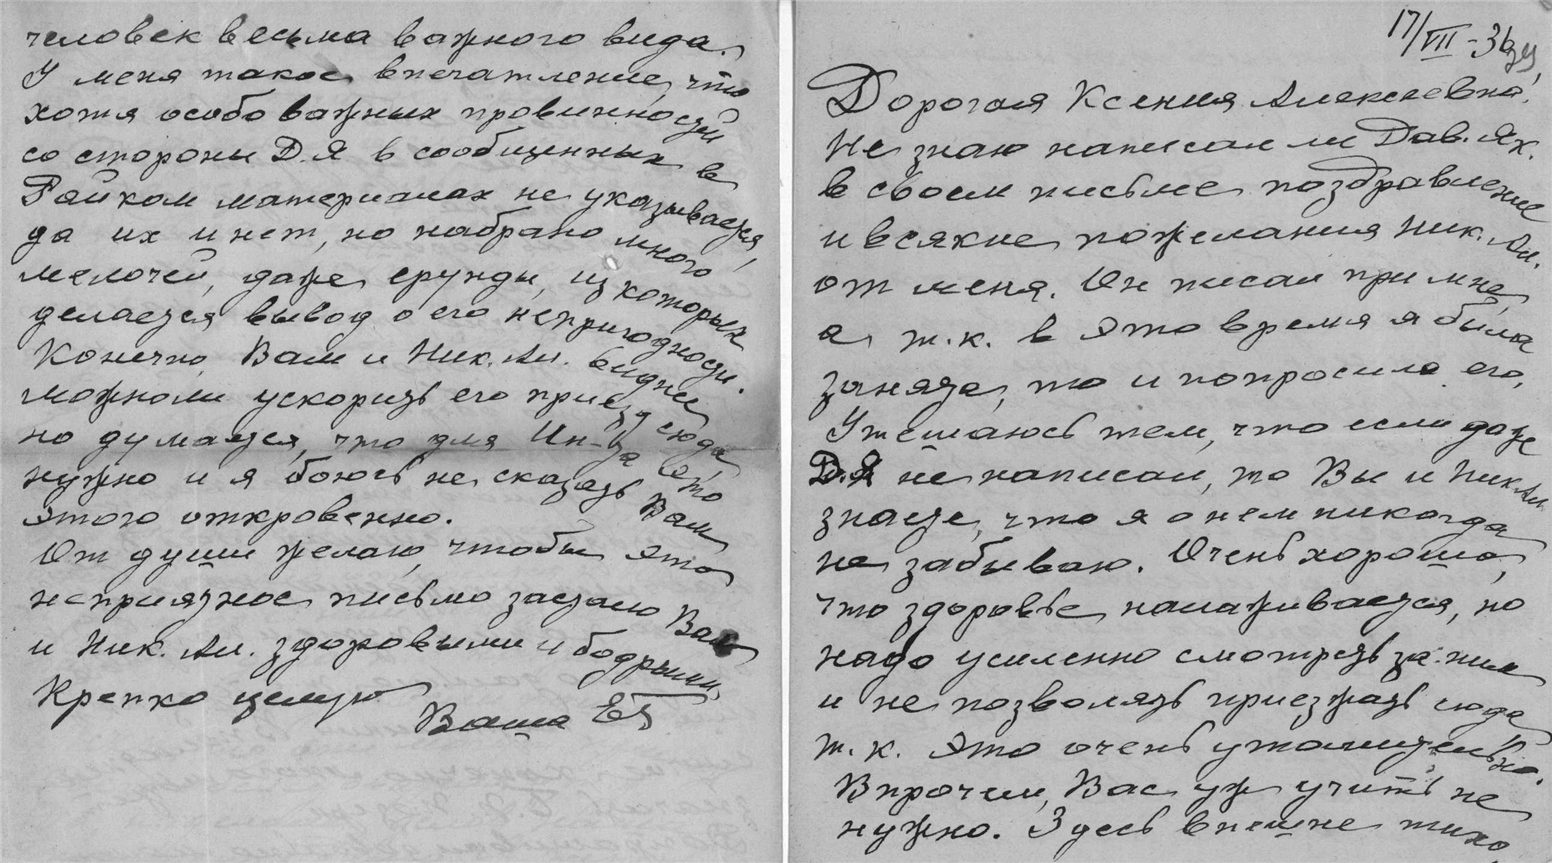 человек весьма важного вида.
У меня такое впечатление, что
хотя особо важных провинностей
со стороны Д.Я в сообщенных в
Райком материалах не указывается,
да их и нет, но набрано много
мелочей, даже ерунды, из которых
делается вывод о его непригодности.
Конечно, Вам и Ник. Ал. виднее
можно ли ускорить его приезд сюда,
но думается, что для Ин-та это
нужно и я боюсь не сказать Вам
этого откровенно.
От души желаю, чтобы это
неприятное письмо застало Вас
и Ник. Ал. здоровыми и бодрыми.
Крепко целую
Ваша
17/VII-36
Дорогая Ксения Алексеевна!
Не знаю написал ли Дав. Як.
в своем письме поздравление
и всякие пожелания Ник. Ал.
от меня. Он писал при мне,
а т.к. в это время я была
занята, то и попросила его.
Утешаюсь тем, что если даже
Д.Я не написал, то Вы и Ник Ал
знаете, что я о нем никогда
не забываю. Очень хорошо,
что здоровье налаживается, но
надо усиленно смотреть за ним
и не позволять приезжать сюда
т.к. это очень утомительно.
Впрочем, Вас уж учить не
нужно. Здесь внешне тихо